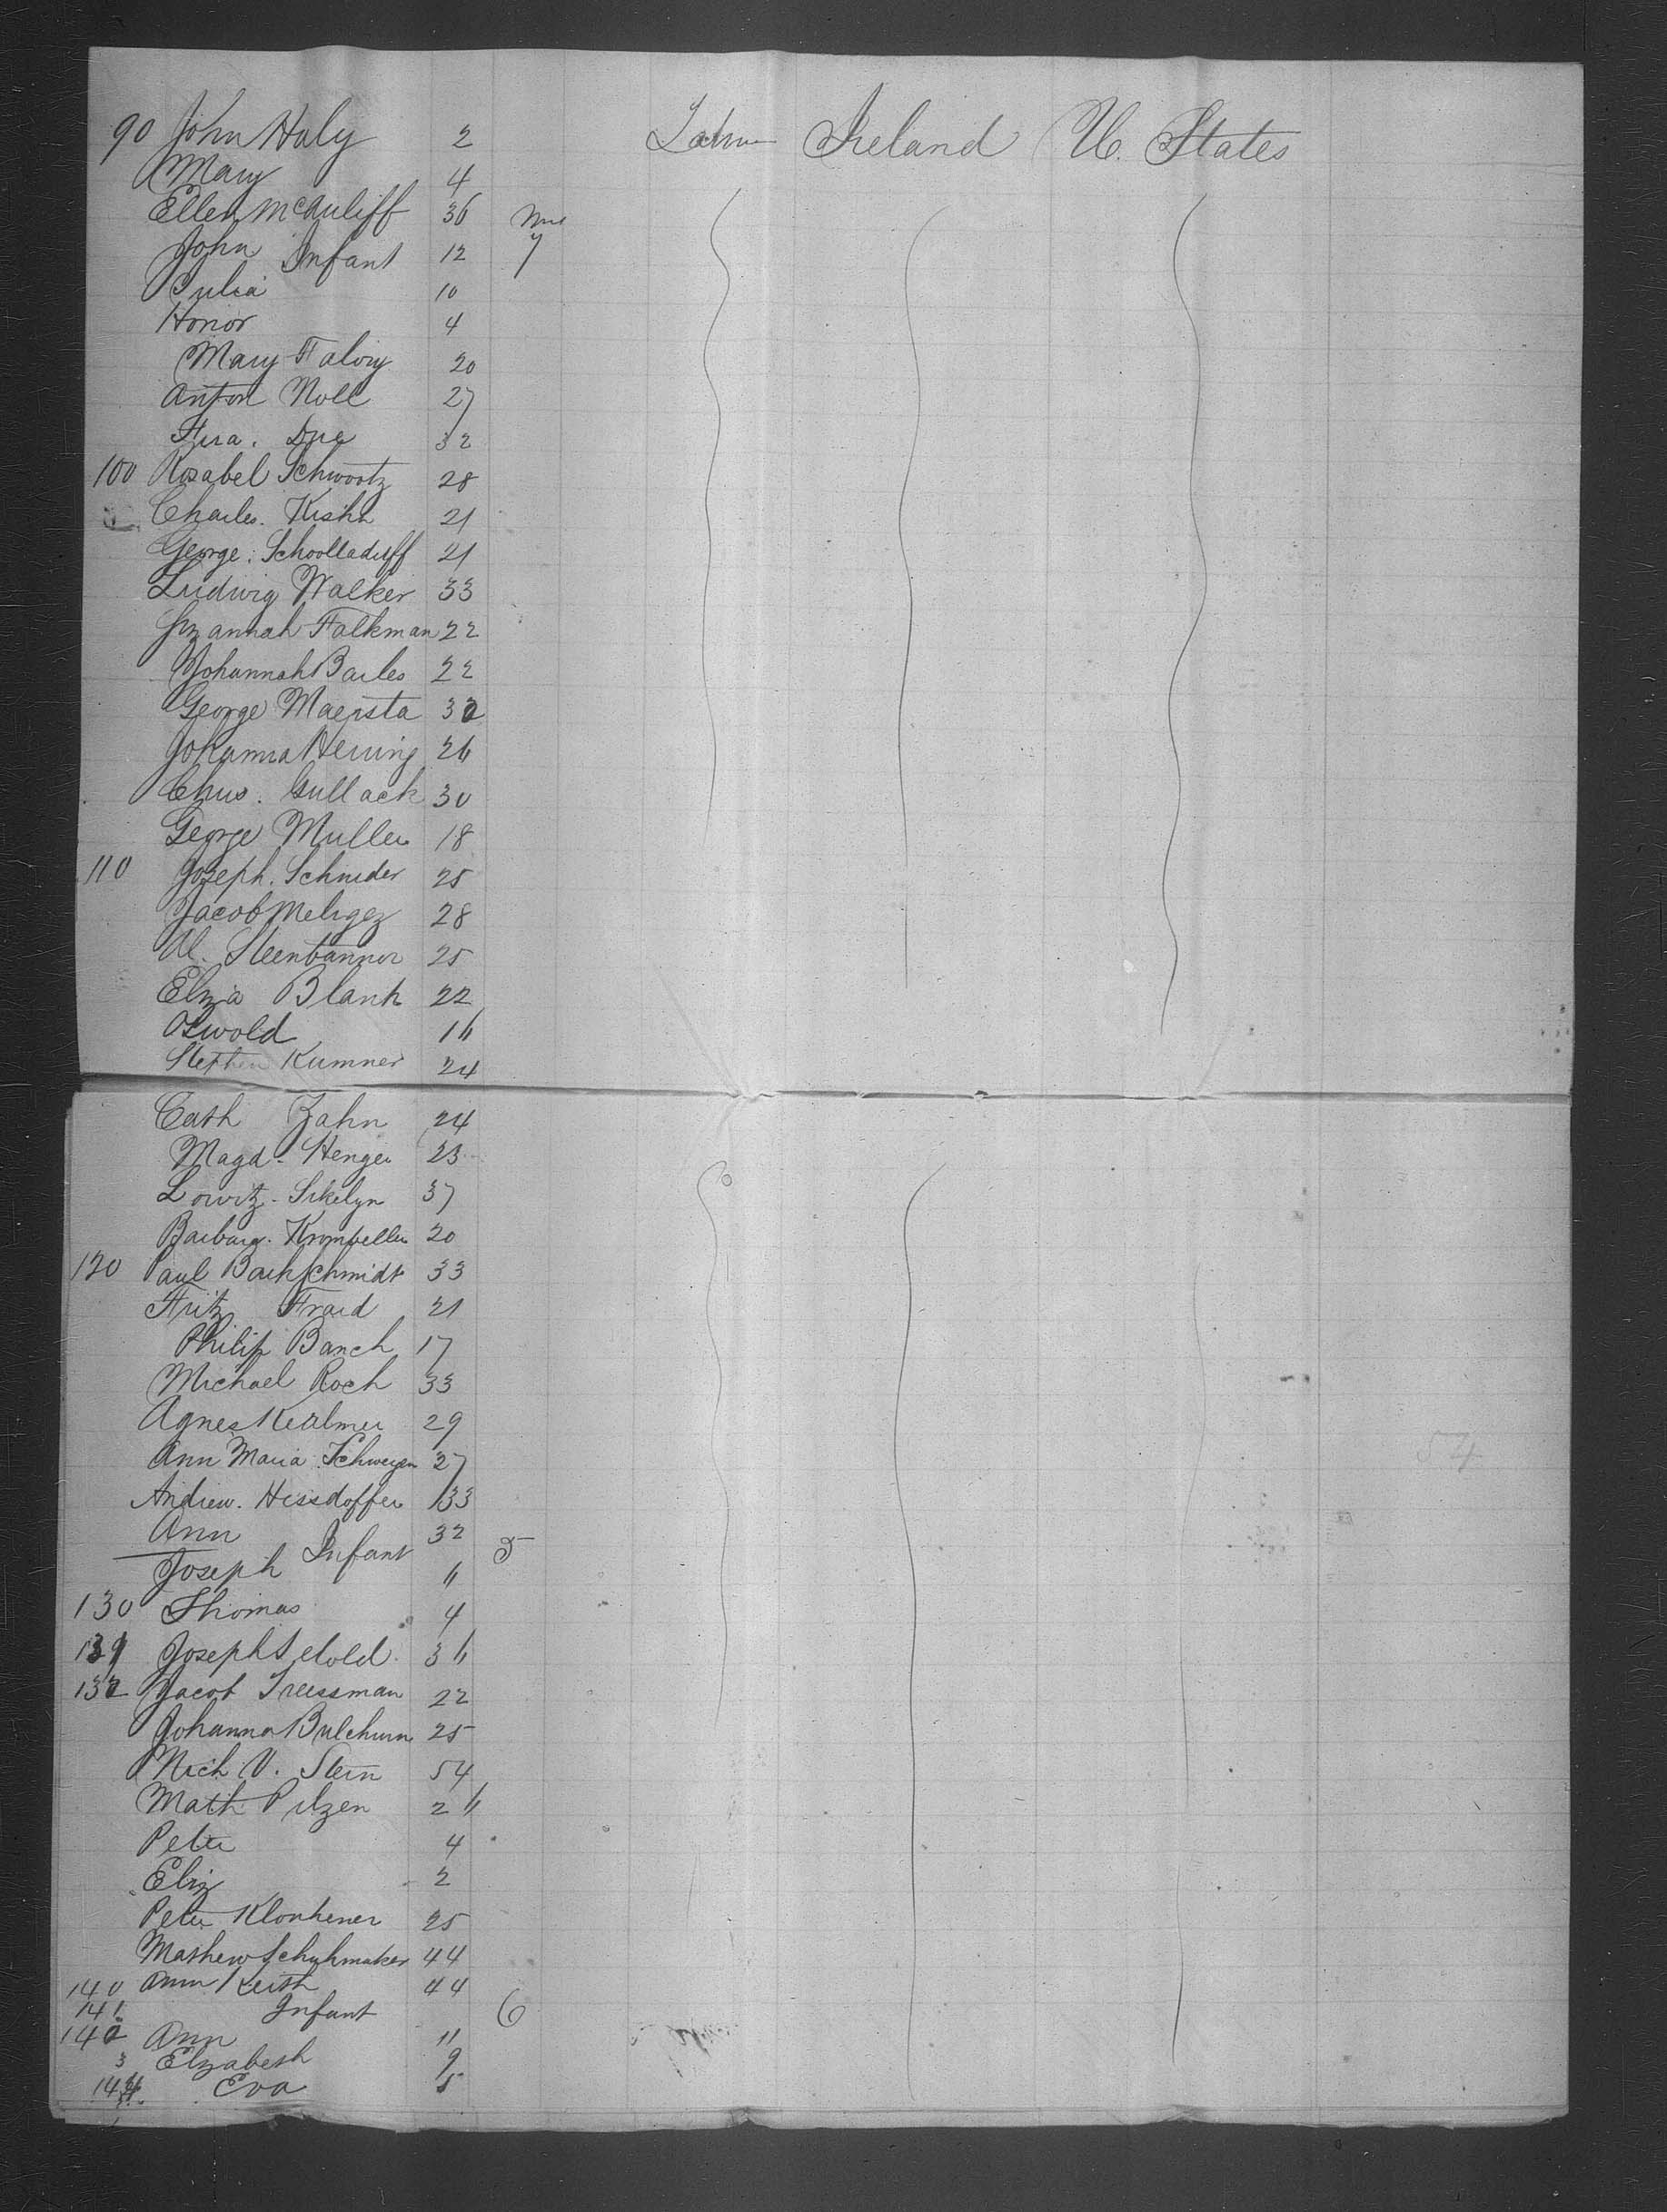 90 John Haly 2 Labr Ireland U. States
Mary 4
Ellen McAuliff 36
John Infant 12 7
Julia 10
Honor 4
Mary Falvy 20
Anton Noll 27
32
100 Rosabel Schwootz 28
Charles. 21
George. Schoolladuff 21
Ludwig Walker 33
Suzannah Falkman 22
Johannah Barles 22
George Maersta 32
Johanna Herring 26
Chus. Gullack 30
George Muller 18
110 Joseph. Schnider 25
Jacob Melrgez 28
Al. Steenbannor 25
Eliza Blank 22
Oswold 16
Stephen Kumner 24
Cath Zahn 24
Magd. Henger 23
Lowitz. Sikelyn 37
Barbara. 20
120 Paul Backschmidt 33
Fritz Fraid 21
Philip Banch 17
Michael Roch 33
Agnes Kealmer 29
Ann Maria Schweyen 27
Andrew. Hissdoffer 33
Ann 32
Infant 5
Joseph 11
130 Thomas 4
131 Joseph 36
132 Jacob Treessman 22
Johanna Bulchurn 25
Mich V. Stein 54
Math Pilzen 26
Peter 4
Eliz 2
Peter Klonhener 25
Mathew Schuhmaker 44
140 Ann Keith 44
141 Infant 6
142 Ann 11
3 Elizabeth 9
144 Eva 5
54